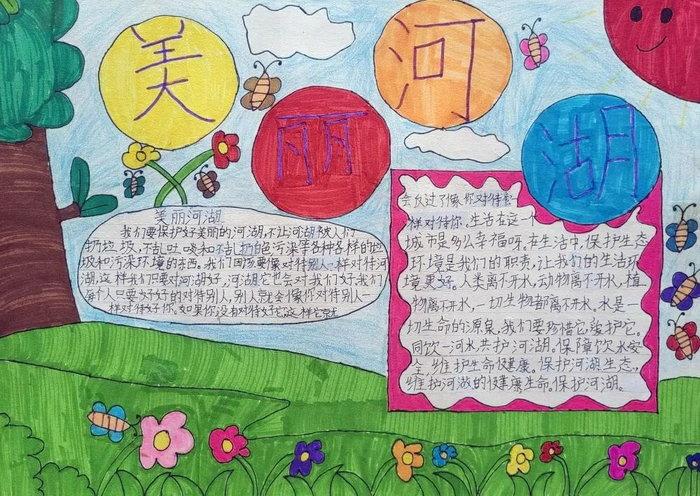 美丽河湖
美丽河湖
我们要保护好美丽的河湖,不让河湖被人们
扔垃圾,不乱吐痰和不乱扔白色污染等各种各样的垃
圾和污染环境的东西。我们应该要像对待别人一样对待河
湖,这样我们只要对河湖好,河湖它也会对我们好,我们
每个人只要好好的对待别人,别人就会像你对待别人一
样对待好你。如果你没有对待好它,这样它就
会反过了像你对待它一
样对待你,生活在这一个
城市是多么幸福呀,在生活中,保护生态
环境是我们的职责,让我们的生活环
境更好。人类离不开水,动物离不开水,植
物离不开水,一切生物都离不开水。水是一
切生命的源泉,我们要珍惜它,爱护它。
同饮一河水共护河湖。保障饮水安
全,维护生命健康。保护河湖生态,
维护河湖的健康生命。保护河湖。